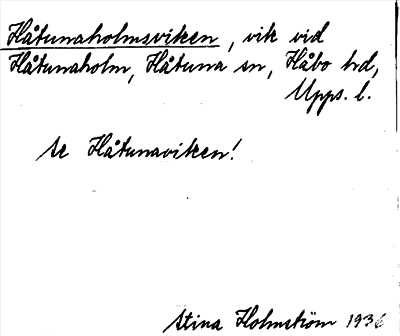 Håtunaholmsviken, vik vid
Håtunaholm, Håtuna sn, Håbo hd,
Upps. l.
se Håtunaviken!
Stina Holmström 1936